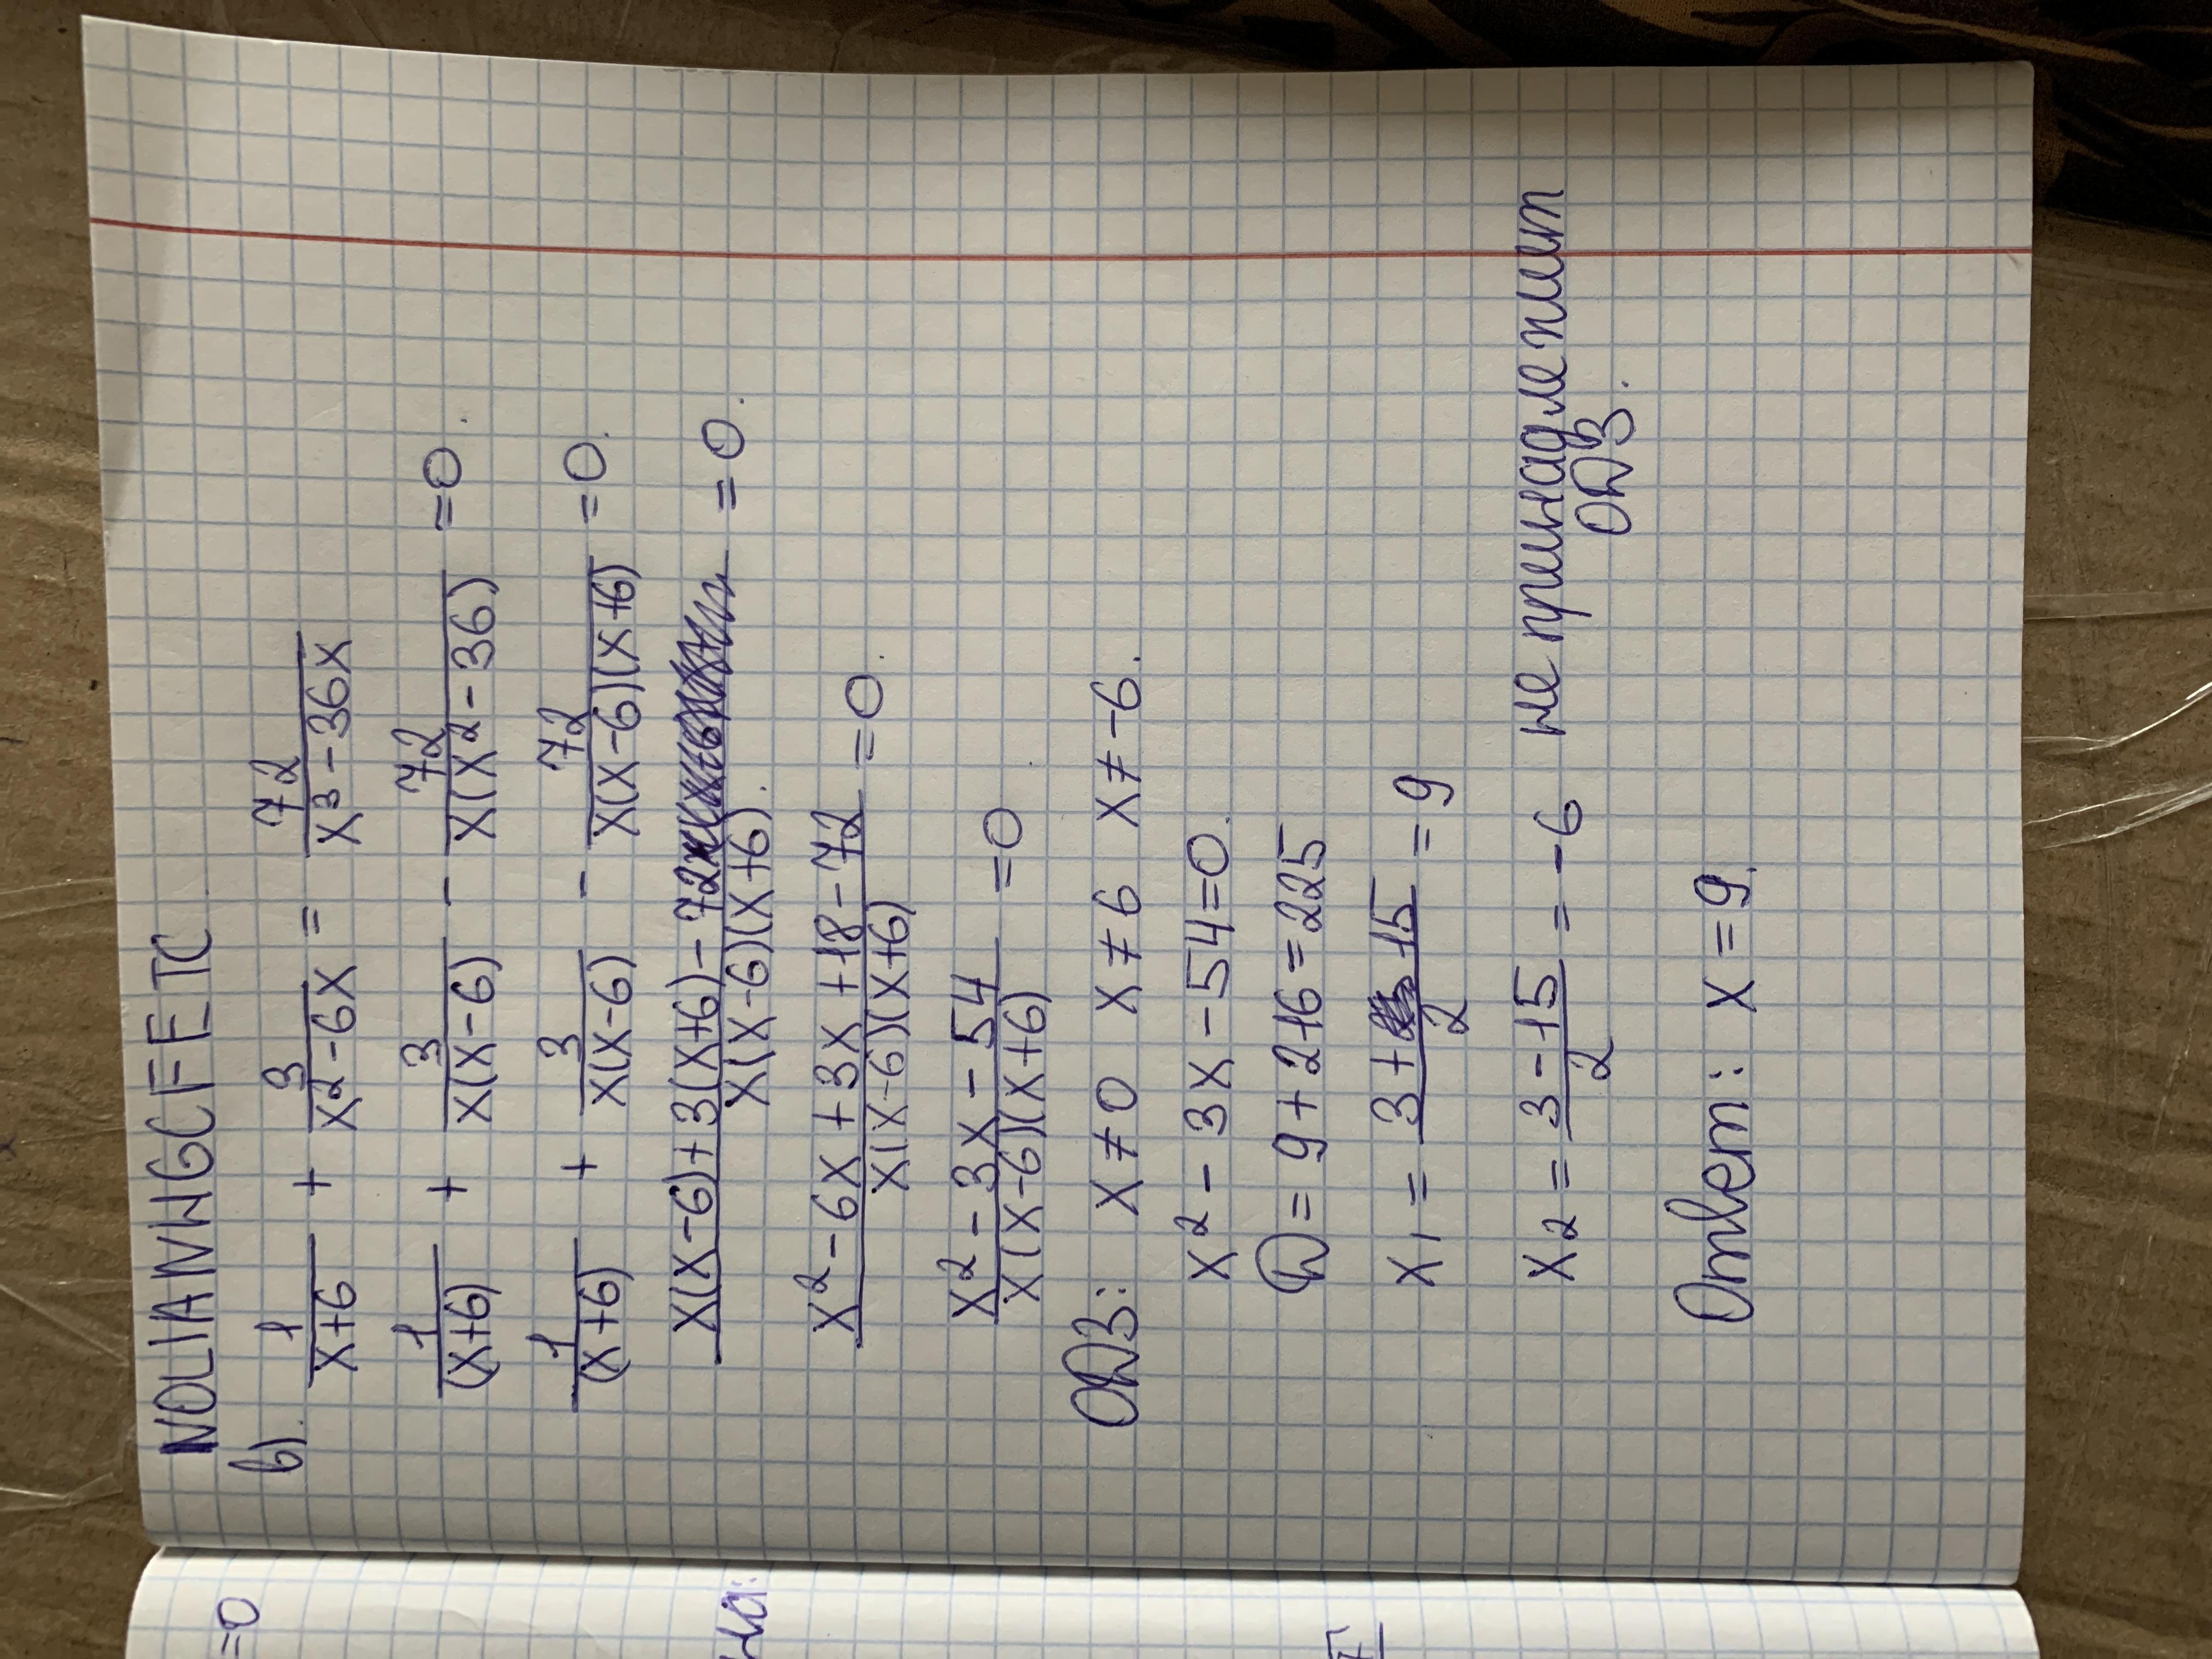 NOLIANWGCFETC
в). 1/(x+6) + 3/(x²-6x) = 72/(x³-36x)
1/((x+6)) + 3/(x(x-6)) - 72/(x(x²-36)) =0.
1/((x+6)) + 3/(x(x-6)) - 72/(x(x-6)(x+6)) =0.
(x(x-6)+3(x+6)-72)/(x(x-6)(x+6)) =0.
(x²-6x+3x+18-72)/(x(x-6)(x+6)) =0.
(x²-3x-54)/(x(x-6)(x+6)) =0
ОДЗ: x≠0 x≠6 x≠-6.
x²-3x-54=0.
D=9+216=225
x₁ = (3+15)/2 =9
x₂ = (3-15)/2 = -6 не принадлежит
ОДЗ.
Ответ: x=9.
=0